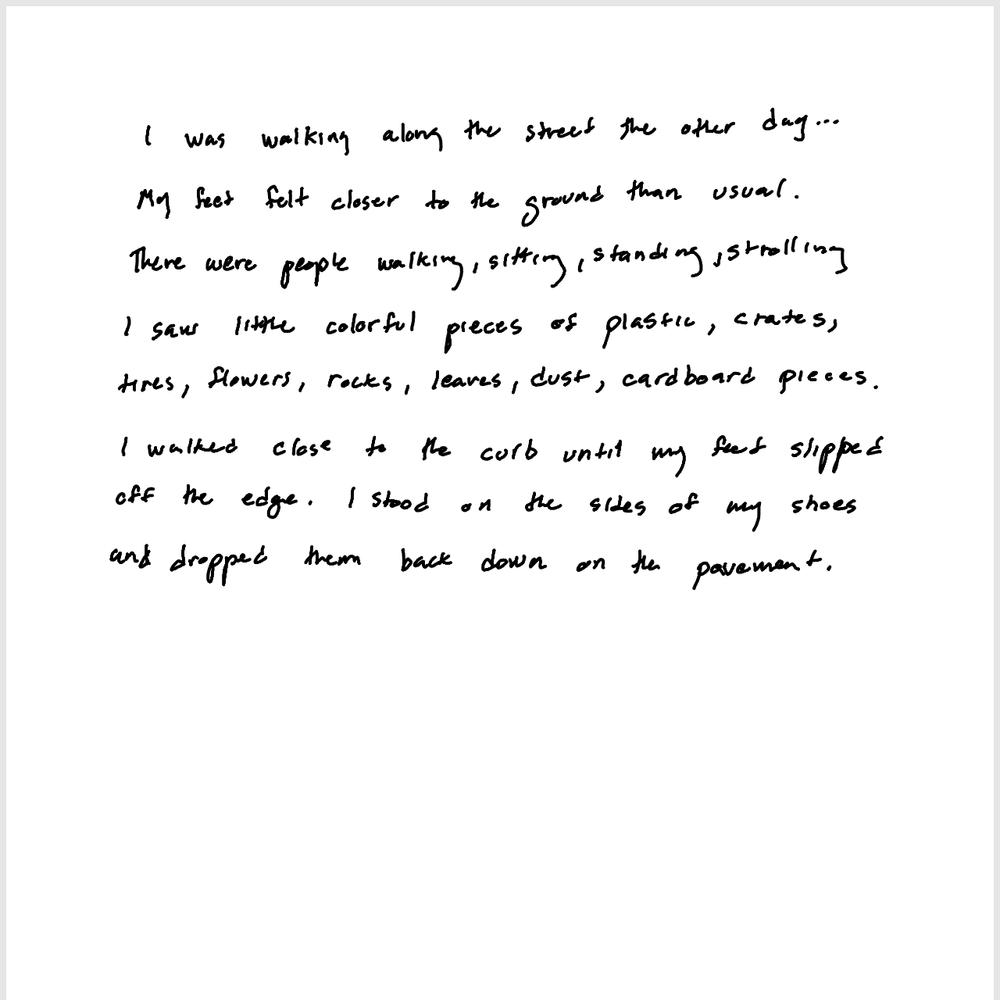 I was walking along the street the other day...
My feet felt closer to the ground than usual.
There were people walking, sitting, standing, strolling
I saw little colorful pieces of plastic, crates,
tires, flowers, rocks, leaves, dust, cardboard pieces.
I walked close to the curb until my feet slipped
off the edge. I stood on the sides of my shoes
and dropped them back down on the pavement.